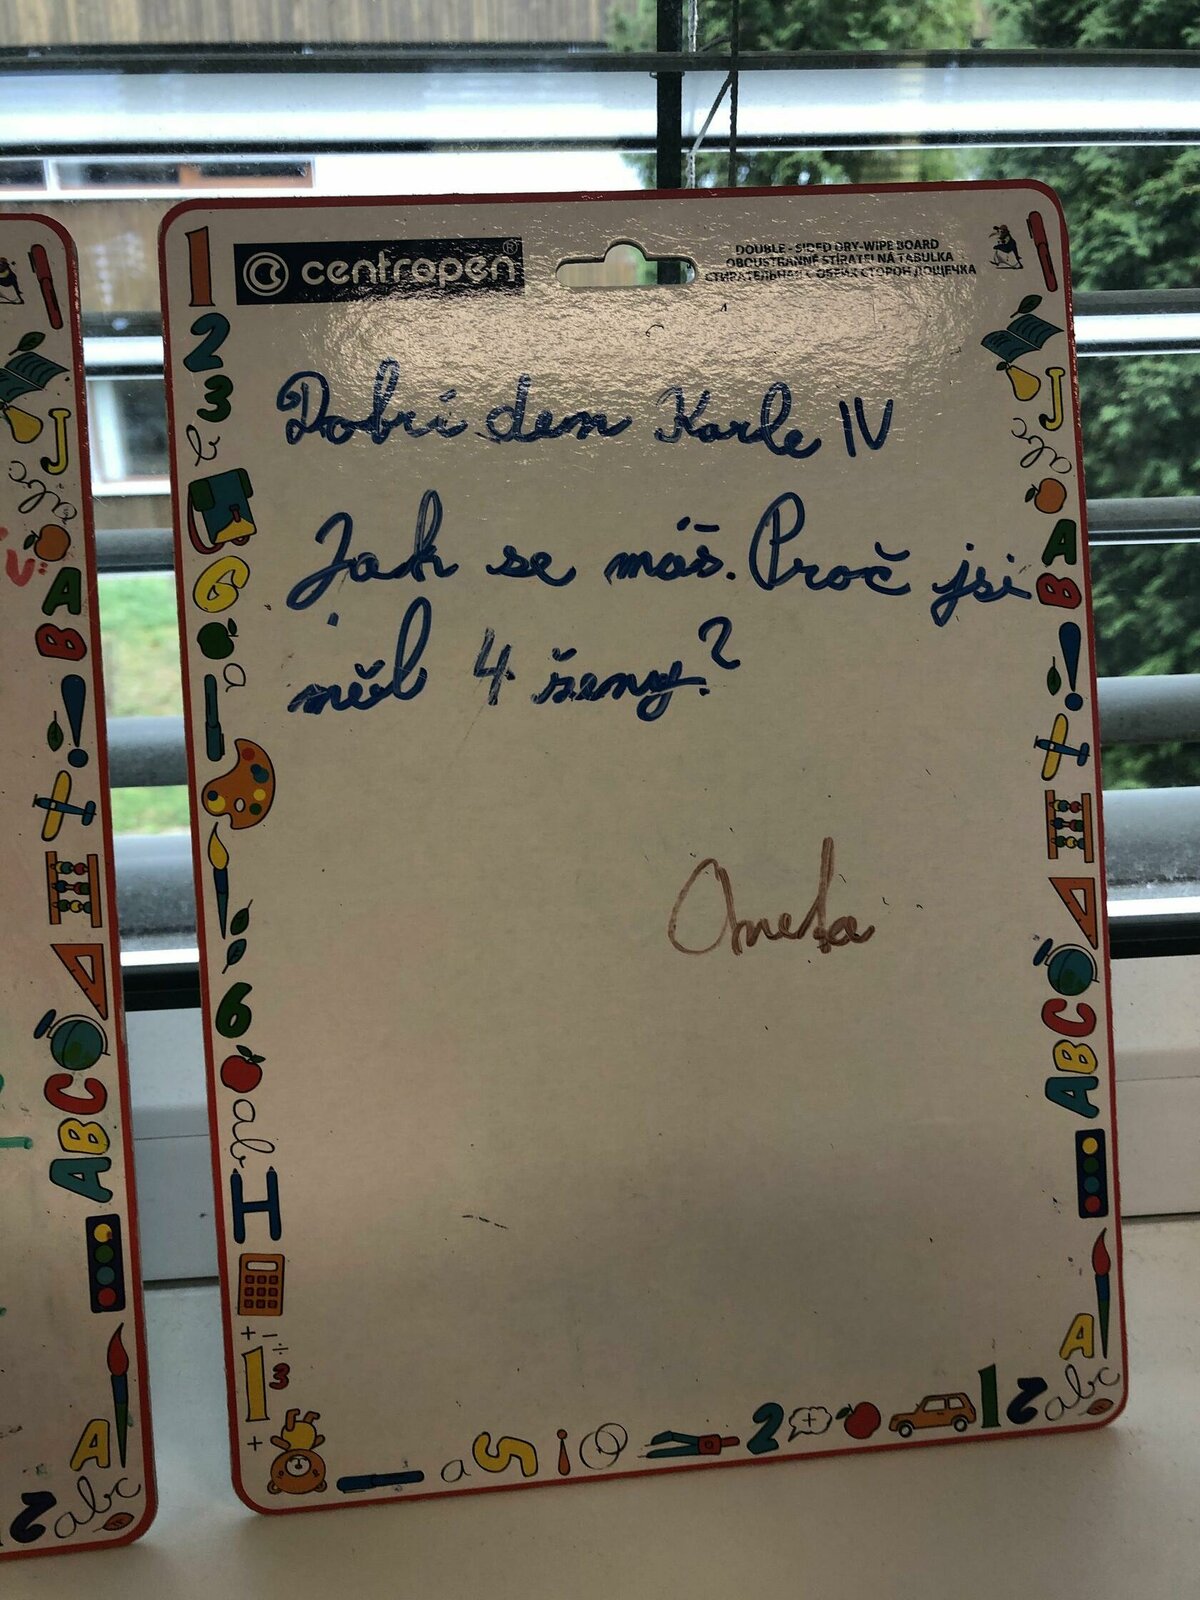 centropen®
DOUBLE - SIDED DRY-WIPE BOARD
OBOUSTRANNĚ STÍRATELNÁ TABULKA
СТИРАТЕЛЬНАЯ С ОБЕИХ СТОРОН ДОЩЕЧКА
Dobrí den Karle IV
Jak se máš. Proč jsi
měl 4 ženy?
Aneta